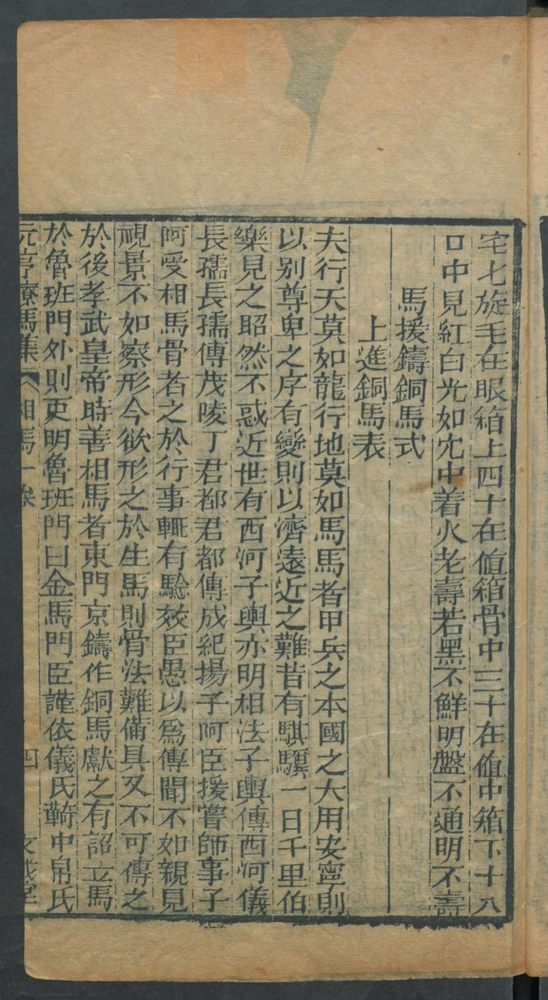 宅七旋毛在眼箱上四十在値箱骨中三十在値中箱下十八
口中見紅白光如穴中着火老壽若黑不鮮明盤不通明不壽
馬援鑄銅馬式
上進銅馬表
夫行天莫如龍行地莫如馬馬者甲兵之本國之大用安寧則
以別尊卑之序有變則以濟遠近之難昔有騏驥一日千里伯
樂見之昭然不惑近世有西河子輿亦明相法子輿傳西河儀
長孺長孺傳茂陵丁君都君都傳成紀揚子阿臣援嘗師事子
阿受相馬骨者之於行事輒有驗效臣愚以爲傳聞不如親見
視景不如察形今欲形之於生馬則骨法難備具又不可傳之
於後孝武皇帝時善相馬者東門京鑄作銅馬獻之有詔立馬
於魯班門外則更明魯班門曰金馬門臣謹依儀氏䩭中帛氏
元亨療馬集 相馬一卷 四